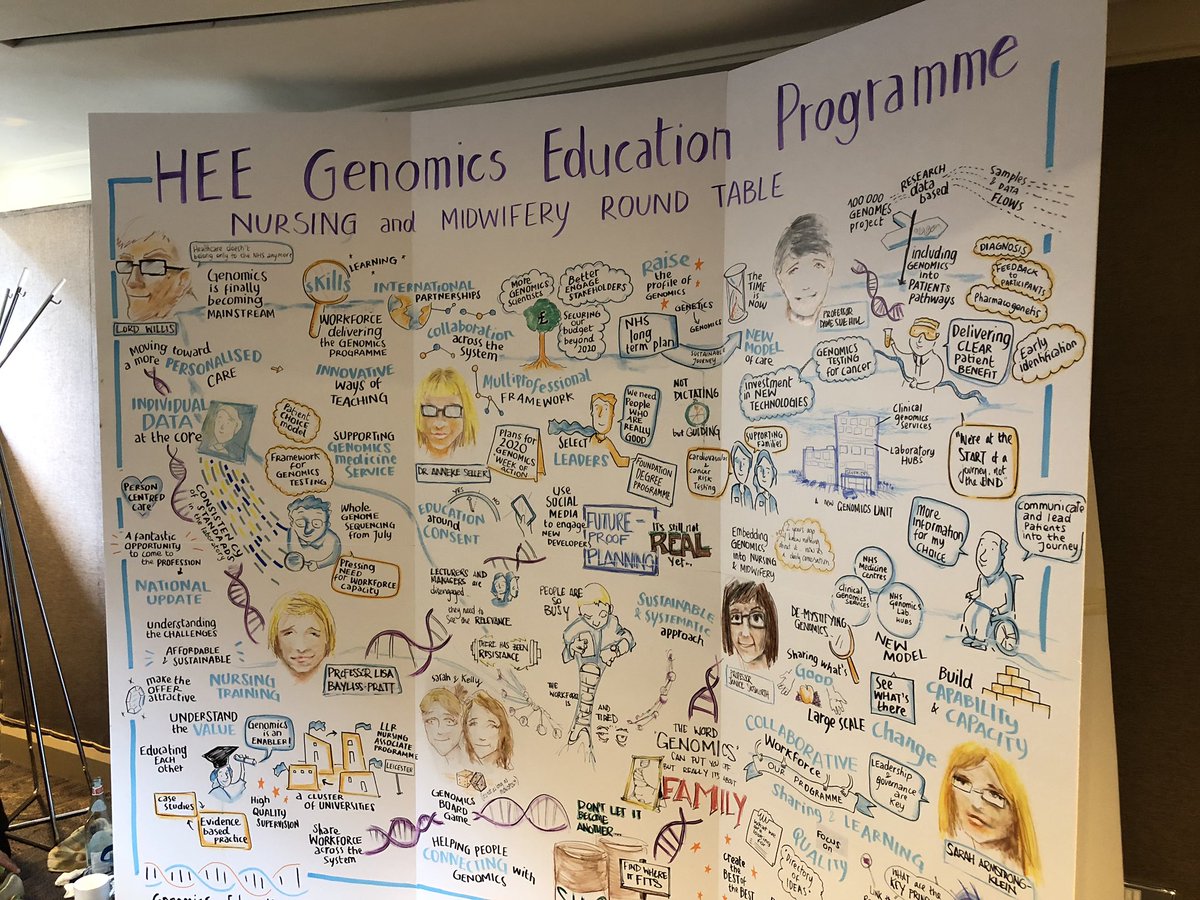 HEE Genomics Education Programme
NURSING and MIDWIFERY ROUND TABLE
Healthcare doesn't
belong only to the NHS anymore
GENOMICS
is finally
becoming
MAINSTREAM
LORD WILLIS
Moving toward
a more PERSONALISED
CARE
INDIVIDUAL
DATA
at the core
PERSON
CENTRED
care
A fantastic
OPPORTUNITY
to come to
the PROFESSION
NATIONAL
UPDATE
understanding
the CHALLENGES
AFFORDABLE
& SUSTAINABLE
make the
OFFER
attractive
NURSING
TRAINING
UNDERSTAND
the VALUE
Educating
EACH
other
Genomics
IS AN
ENABLER!
case
studies
Evidence
based
practice
HIGH
QUALITY
SUPERVISION
A CLUSTER
OF UNIVERSITIES
LLR
NURSING
ASSOCIATE
PROGRAMME
LEICESTER
Share
WORKFORCE
across the
system
LEARNING
SKILLS
WORKFORCE
delivering
the GENOMICS
PROGRAMME
INNOVATIVE
ways of
TEACHING
Patient
CHOICE
model
FRAMEWORK
for
GENOMICS
TESTING
SUPPORTING
GENOMICS
medicine
SERVICE
CONSISTENCY
of STANDARDS
in the laboratory
Whole
GENOME
SEQUENCING
from July
Pressing
NEED
for WORKFORCE
capacity
PROFESSOR LISA
BAYLISS-PRATT
INTERNATIONAL
PARTNERSHIPS
collaboration
across the
system
More
GENOMICS
scientists
Better
ENGAGE
STAKEHOLDERS
SECURING
our
budget
beyond
2020
£
Raise
the
profile of
GENOMICS
GENETICS
GENOMICS
NHS
long term
plan
SUSTAINABLE
JOURNEY
MULTIPROFESSIONAL
FRAMEWORK
DR ANNEKE SELLER
Plans for
2020
GENOMICS
WEEK OF
ACTION
SELECT
LEADERS
We need
PEOPLE
WHO
ARE
REALLY
GOOD
NOT
DICTATING
but GUIDING
FOUNDATION
DEGREE
PROGRAMME
Cardiovascular
& cancer
RISK
TESTING
YES
NO
EDUCATION
around
CONSENT
USE
SOCIAL
MEDIA
to engage
NEW
DEVELOPERS
FUTURE-
PROOF
PLANNING
IT'S still not
REAL
yet...
LECTURERS
AND
MANAGERS
are
disengaged
they need to
see the RELEVANCE
THERE HAS BEEN
RESISTANCE
PEOPLE ARE
SO
BUSY
SUSTAINABLE
& SYSTEMATIC
approach
THE
WORKFORCE IS
AND
TIRED
Sarah & Kelly
THE WORD
'GENOMICS'
CAN PUT YOU
BUT REALLY IT'S ABOUT
FAMILY
GENOMICS
BOARD
Game
DON'T LET IT
BECOME
ANOTHER...
FIND WHERE
IT FITS
HELPING PEOPLE
CONNECTING with
GENOMICS
THE
TIME
is NOW
PROFESSOR
DAME SUE HILL
100 000
GENOMES
project
RESEARCH
data
based
Samples
& DATA
FLOWS
including
GENOMICS
INTO
PATIENTS
pathways
DIAGNOSIS
FEEDBACK
to
PARTICIPANTS
NEW
MODEL
of care
GENOMICS
TESTING
for cancer
Delivering
CLEAR
patient
BENEFIT
Early
identification
Investment
in NEW
TECHNOLOGIES
Clinical
genomics
SERVICES
Laboratory
HUBS
"We're at the
START of a
journey, not
the END"
SUPPORTING
Families
A new GENOMICS UNIT
Embedding
GENOMICS
into NURSING
& MIDWIFERY
More
Information
for my
CHOICE
Communicate
and lead
Patients
into the
Journey
NHS
Medicine
CENTRES
Clinical
Genomics
SERVICES
NHS
Genomics
Lab
HUBS
NEW
MODEL
DE-MYSTIFYING
GENOMICS
Sharing what's
Good
SEE
WHAT'S
there
Build
CAPABILITY
& CAPACITY
Large SCALE change
COLLABORATIVE
WORKFORCE
OUR PROGRAMME
Leadership &
governance
are
Key
Sharing & LEARNING
FOCUS
on
QUALITY
Directory
of
IDEAS!
Create
the
BEST of
the BEST
WHAT are the
SARAH ARMSTRONG-
KLEIN